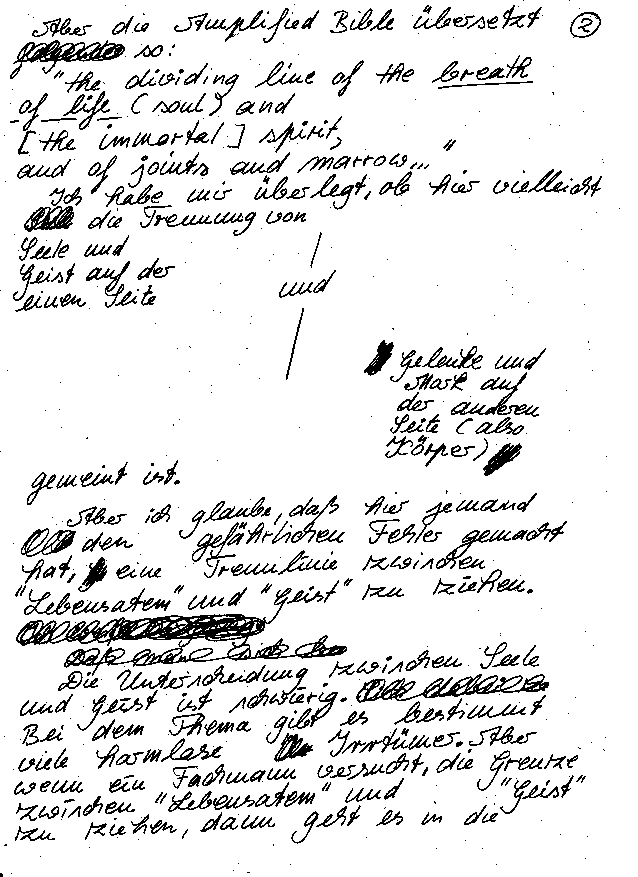 Aber die Amplified Bible übersetzt ②
so:
"the dividing line of the breath
of life (soul) and
[the immortal] spirit,
and of joints and marrow..."
Ich habe mir überlegt, ob hier vielleicht
die Trennung von
Seele und
Geist auf der
einen Seite
und
Gelenke und
Mark auf
der anderen
Seite (also
Körper)
gemeint ist.
Aber ich glaube, daß hier jemand
den gefährlichen Fehler gemacht
hat, eine Trennlinie zwischen
"Lebensatem" und "Geist" zu ziehen.
Die Unterscheidung zwischen Seele
und Geist ist schwierig.
Bei dem Thema gibt es bestimmt
viele harmlose Irrtümer. Aber
wenn ein Fachmann versucht, die Grenze
zwischen "Lebensatem" und "Geist"
zu ziehen, dann geht es in die